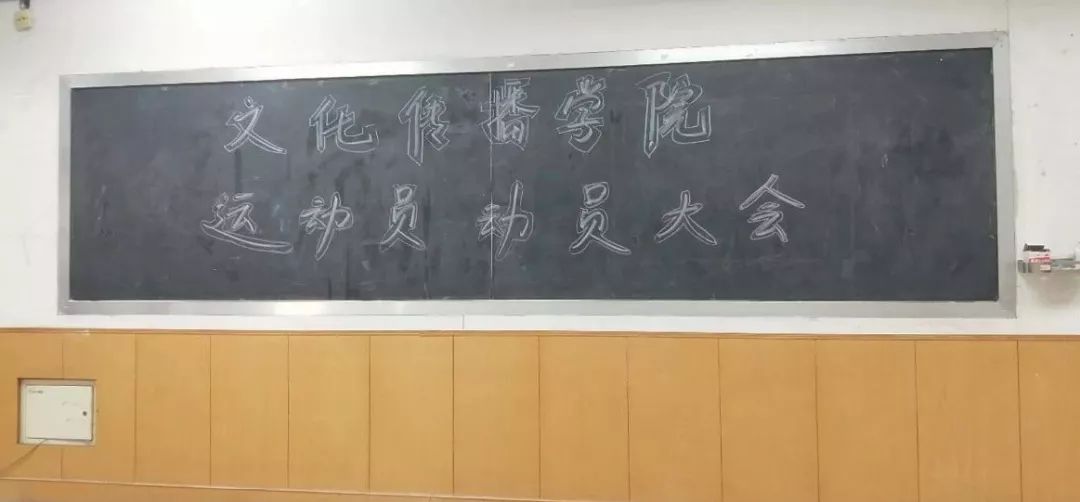 文化传播学院
运动员动员大会